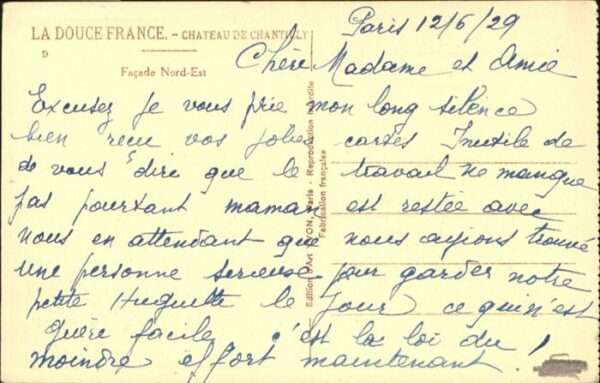 Paris 12/6/29
LA DOUCE FRANCE. - CHATEAU DE CHANTILLY
9
Façade Nord-Est
Chère Madame et Amie
Excusez je vous prie mon long silence
bien reçu vos jolies cartes Inutile de
de vous dire que le travail ne manque
pas pourtant maman est restée avec
nous en attendant que nous ayions trouvé
une personne serieuse pour garder notre
petite Huguette le jour ce qui n'est
guère facile c'est la loi du
moindre effort maintenant !
Edition d'Art YVON, Paris - Reproduction interdite
Fabrication française